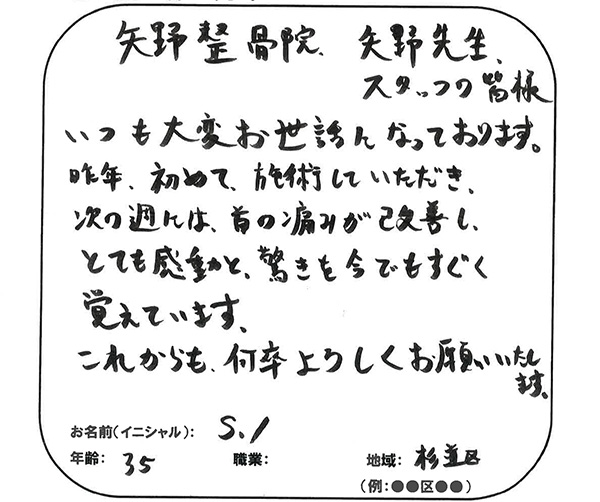 矢野整骨院、矢野先生、
スタッフの皆様
いつも大変お世話になっております。
昨年、初めて、施術していただき、
次の週には、首の痛みが改善し、
とても感動と、驚きを今でもすぐく
覚えています。
これからも、何卒よろしくお願いいたし
ます。
お名前(イニシャル): S.I
年齢: 35 職業: 地域: 杉並区
(例:●●区●●)